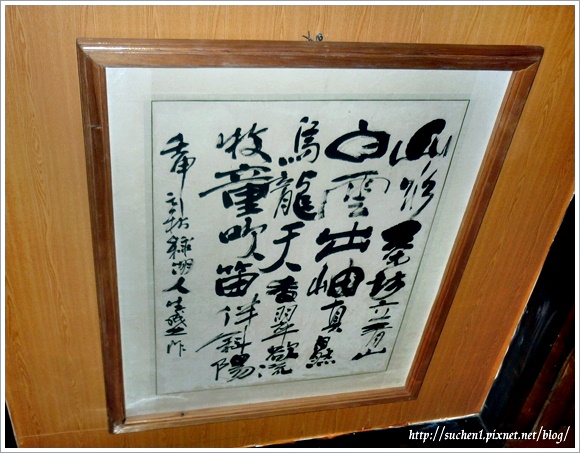 山形茶坊立青山
白雲出岫真
烏龍天香翠欲流
牧童吹笛伴斜陽
壬申 湖人生 作
http://suchen1.pixnet.net/blog/